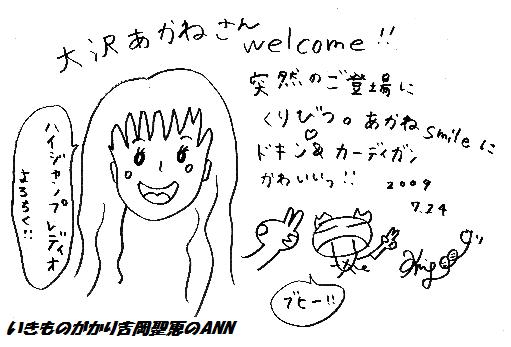 大沢あかねさん
welcome!!
突然のご登場に
くりびつ。あかねsmileに
ドキン&カーディガン
かわいいっ!!
2009
7.24
ハイジャンプレディオ
よろちく!!
ブヒー!!
いきものがかり吉岡聖恵のANN